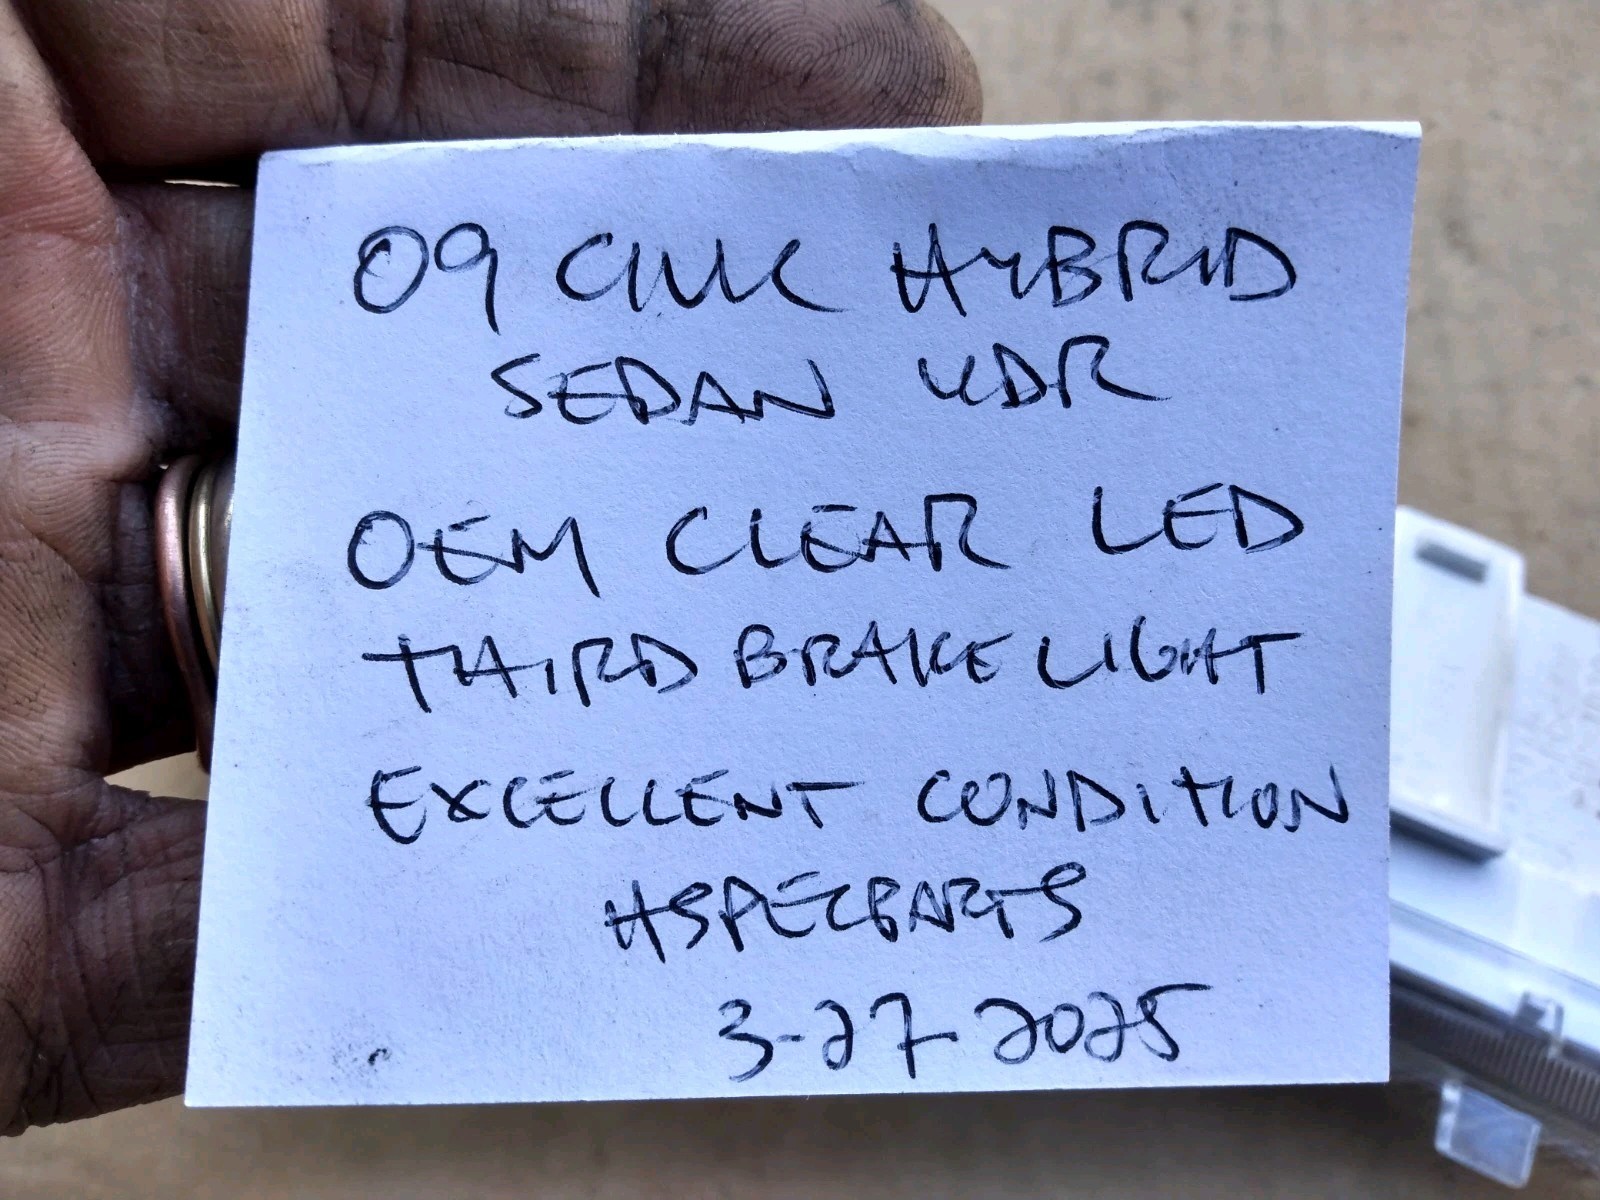 09 CIVIC HYBRID
SEDAN 4DR
OEM CLEAR LED
THIRD BRAKE LIGHT
EXCELLENT CONDITION
HSPECPARTS
3-27-2025